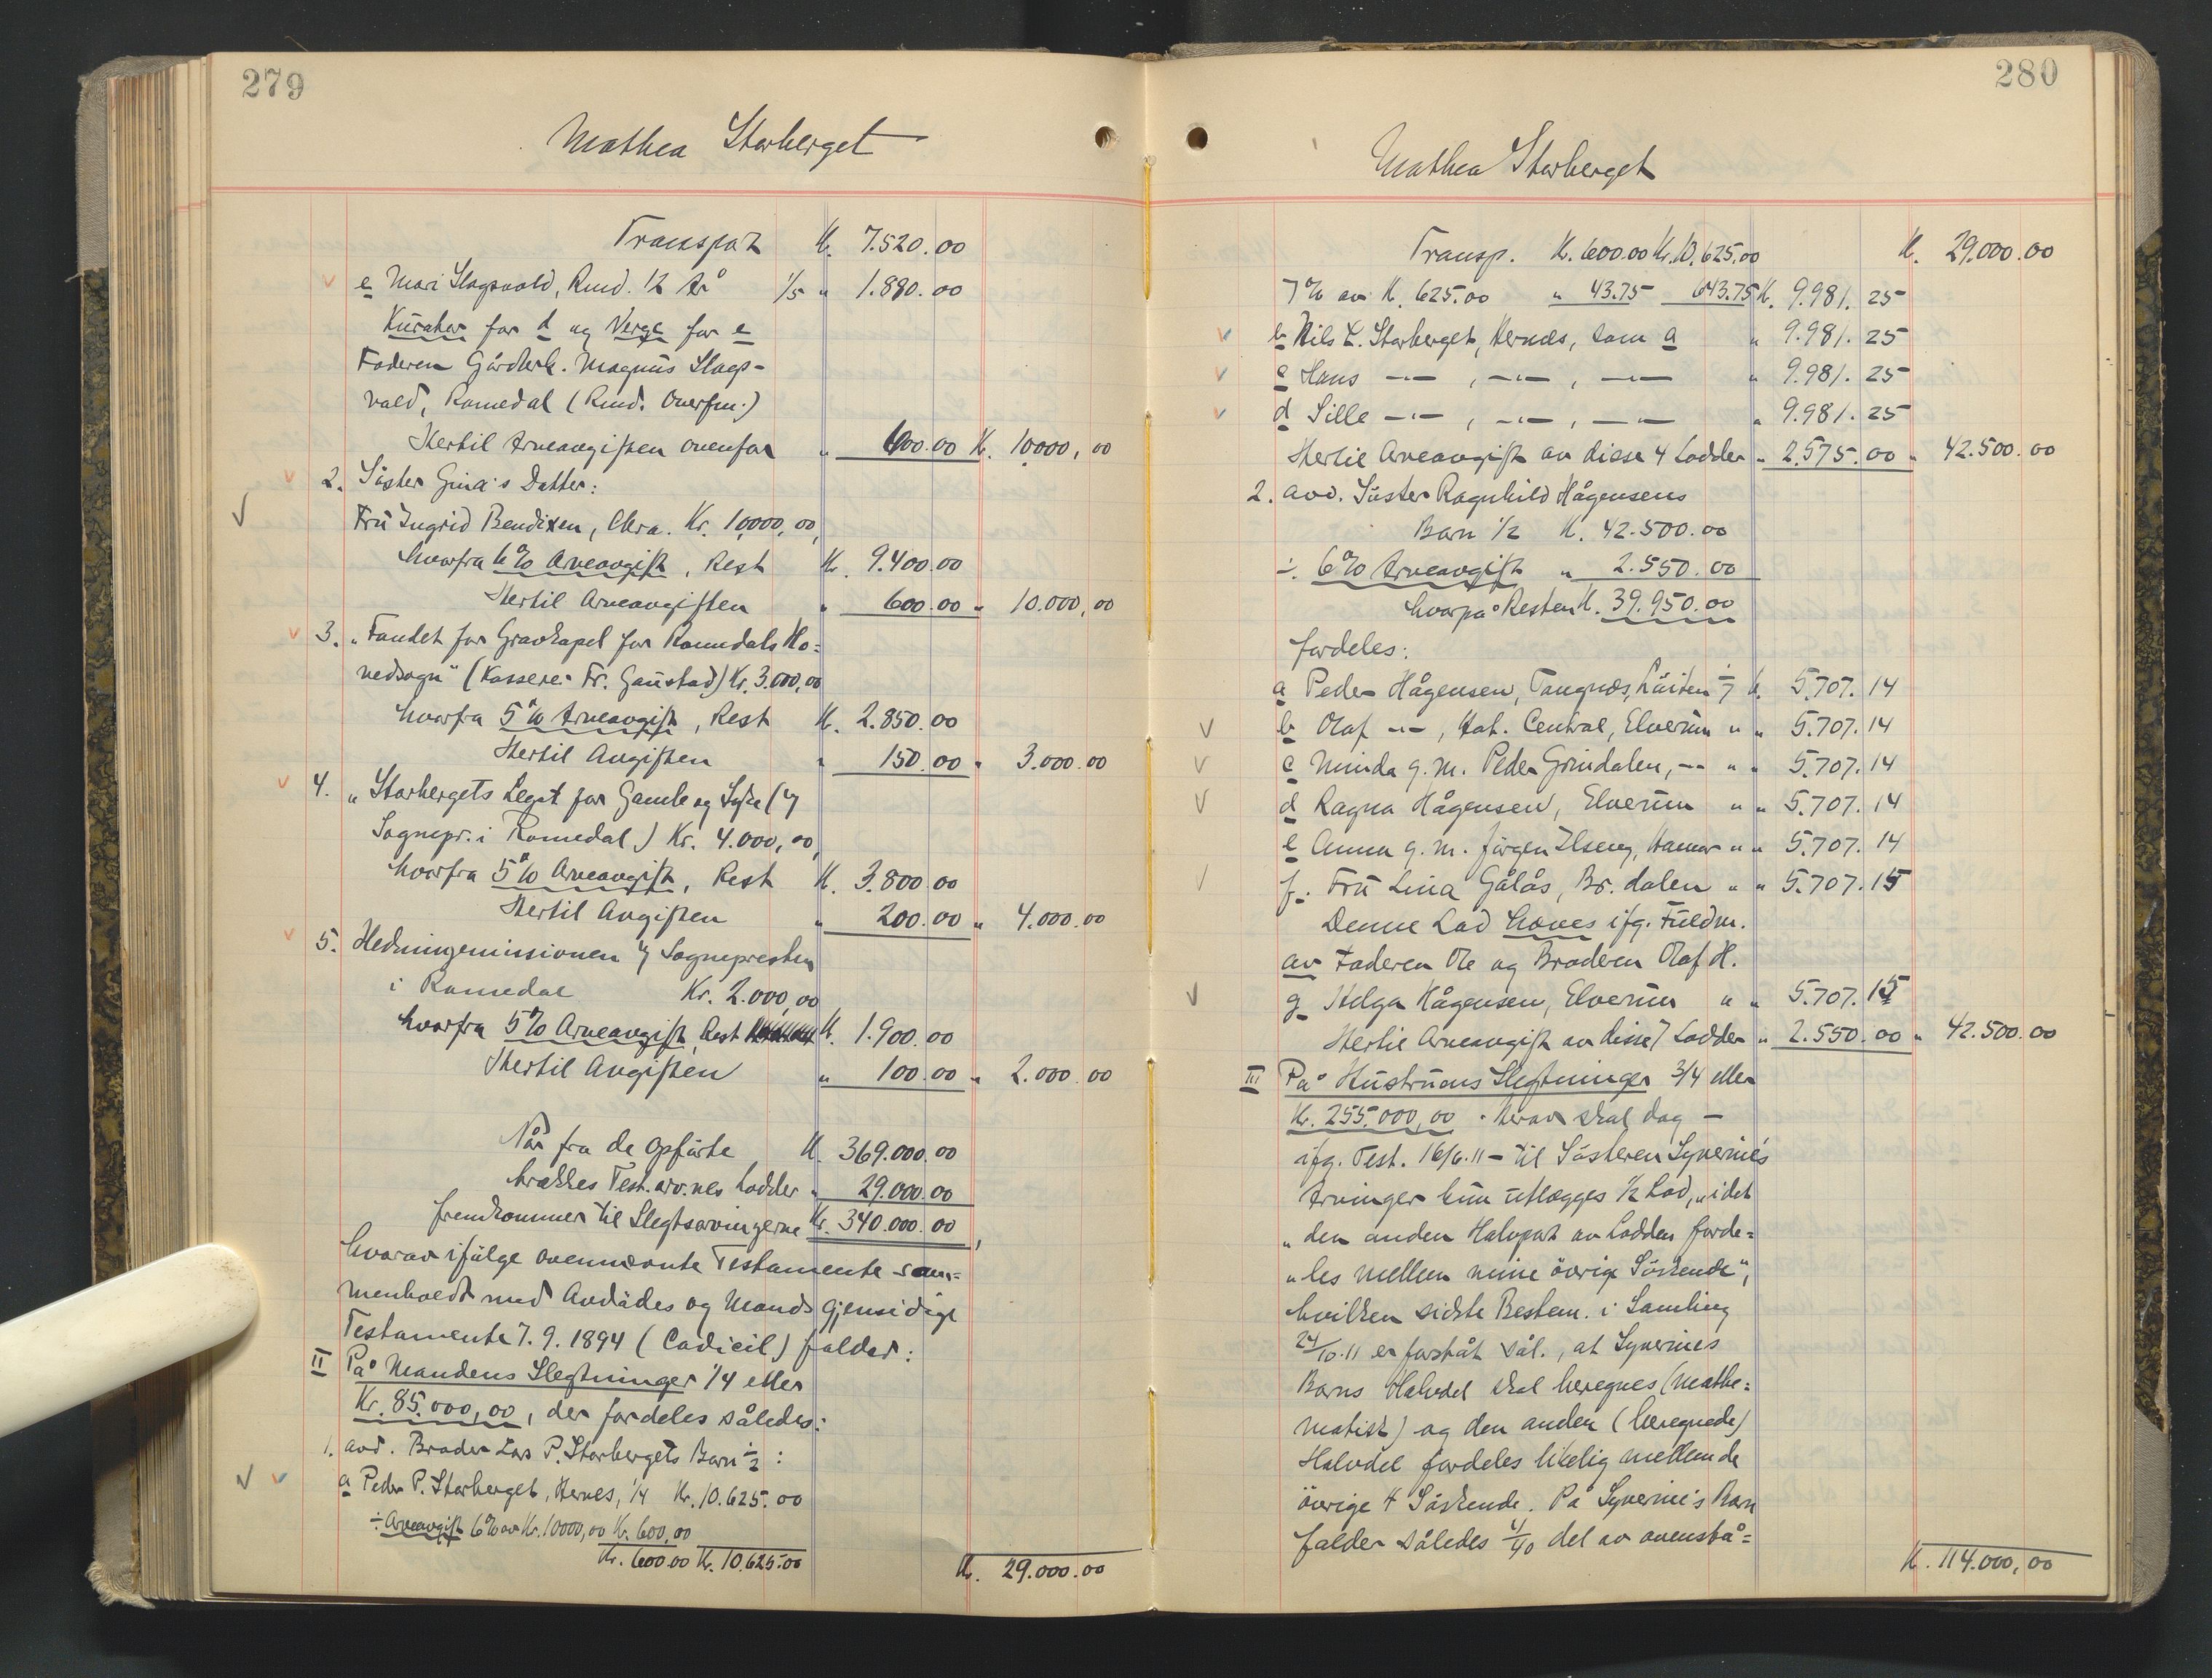 279
Mathea Storberget
Transport Kr. 7.520.00
e Mari Slagsvold, Rmd. 12 År 1/5 " 1.880.00
Kurator for d og Verge for e
Faderen Gårdbrk. Magnus Slags-
vold, Romedal (Rmd. Overfm.)
Hertil Arveavgiften ovenfor " 600.00 Kr. 10000,00
2. Søster Gina's Datter:
Fru Ingrid Bendixen, Chra. Kr. 10000,00,
hvorfra 6% Arveavgift, Rest Kr. 9.400.00
Hertil Arveavgiften " 600.00 " 10.000,00
3. "Fondet for Gravkapel for Romedals Ho=
vedsogn" (Kasserer Fr. Gaustad) Kr. 3.000,00
hvorfra 5% Arveavgift, Rest Kr. 2.850.00
Hertil Avgiften " 150.00 " 3.000.00
4. "Storbergets Legat for Gamle og Syke (v/
Sognepr. i Romedal) Kr. 4.000,00,
hvorfra 5% Arveavgift, Rest Kr. 3.800.00
Hertil Avgiften " 200.00 " 4.000.00
5. Hedningemissionen v/ Sognepresten
i Romedal Kr. 2.000,00
hvorfra 5% Arveavgift, Rest Kr. 1.900.00
Hertil Avgiften " 100.00 " 2.000.00
Når fra de opførte Kr. 369.000.00
trækkes Test.arv.nes Lodder " 29.000.00
fremkommer til Slegtsarvingerne Kr. 340.000.00,
hvorav ifølge ovennævnte Testamente sam=
menholdt med Avdødes og Mands gjensidige
Testamente 7.9.1894 (Codicil) falder:
II På Mandens Slegtninger 1/4 eller
Kr. 85.000,00, der fordeles således:
1. avd. Broder Lars P. Storbergets Barn 1/2:
a Peder P. Storberget, Hernes, 1/4 Kr. 10.625.00
÷ Arveavgift 6% av Kr. 10000,00 Kr. 600,00
Kr. 600.00 Kr. 10.625.00
Kr. 29.000.00
280
Mathea Storberget
Transp. Kr. 600.00 Kr. 10.625.00 Kr. 29.000.00
7% av Kr. 625.00 " 43.75 643.75 Kr. 9.981.25
b Nils L. Storberget, Hernes, som a " 9.981.25
c Hans -"-, -"-, -"- " 9.981.25
d Sille -"-, -"-, -"- " 9.981.25
Hertil Arveavgift av disse 4 Lodder " 2.575.00 " 42.500.00
2. avd. Søster Ragnhild Hågensens
Barn 1/2 Kr. 42.500.00
÷ 6% Arveavgift " 2.550.00
hvorpå Resten Kr. 39.950.00
fordeles:
a Peder Hågensen, Tangnæs, Løiten 1/7 Kr. 5.707.14
b Olaf -"-, Hot. Central, Elverum " " 5.707.14
c Minda g.m. Peder Grindalen, -"- " " 5.707.14
d Ragna Hågensen, Elverum " " 5.707.14
e Anna g.m. Jørgen Ilseng, Hamar " " 5.707.14
f. Fru Lina Gålås, Br.dalen " " 5.707.15
Denne Lod hæves ifg. Fuldm.
av Faderen Ole og Broderen Olaf H.
g Helga Hågensen, Elverum " " 5.707.15
Hertil Arveavgift av disse 7 Lodder " 2.550.00 " 42.500.00
III På Hustruens Slegtninger 3/4 eller
Kr. 255.000,00. Herav skal dog –
ifg. Test. 16/6.11 – til Søsteren Syverine's
Arvinger kun utlægges 1/2 Lod, "idet
"den anden Halvpart av Lodden forde=
"les mellem mine øvrige Søskende",
hvilken sidste Bestem. i Samling
24/10.11 er forståt sål., at Syverines
Barns Halvdel skal beregnes (mathe=
matisk) og den anden (beregnede)
Halvdel fordeles likelig mellem de
øvrige 4 Søskende. På Syverine's Barn
falder således 4/40 del av ovenstå=
Kr. 114.000,00